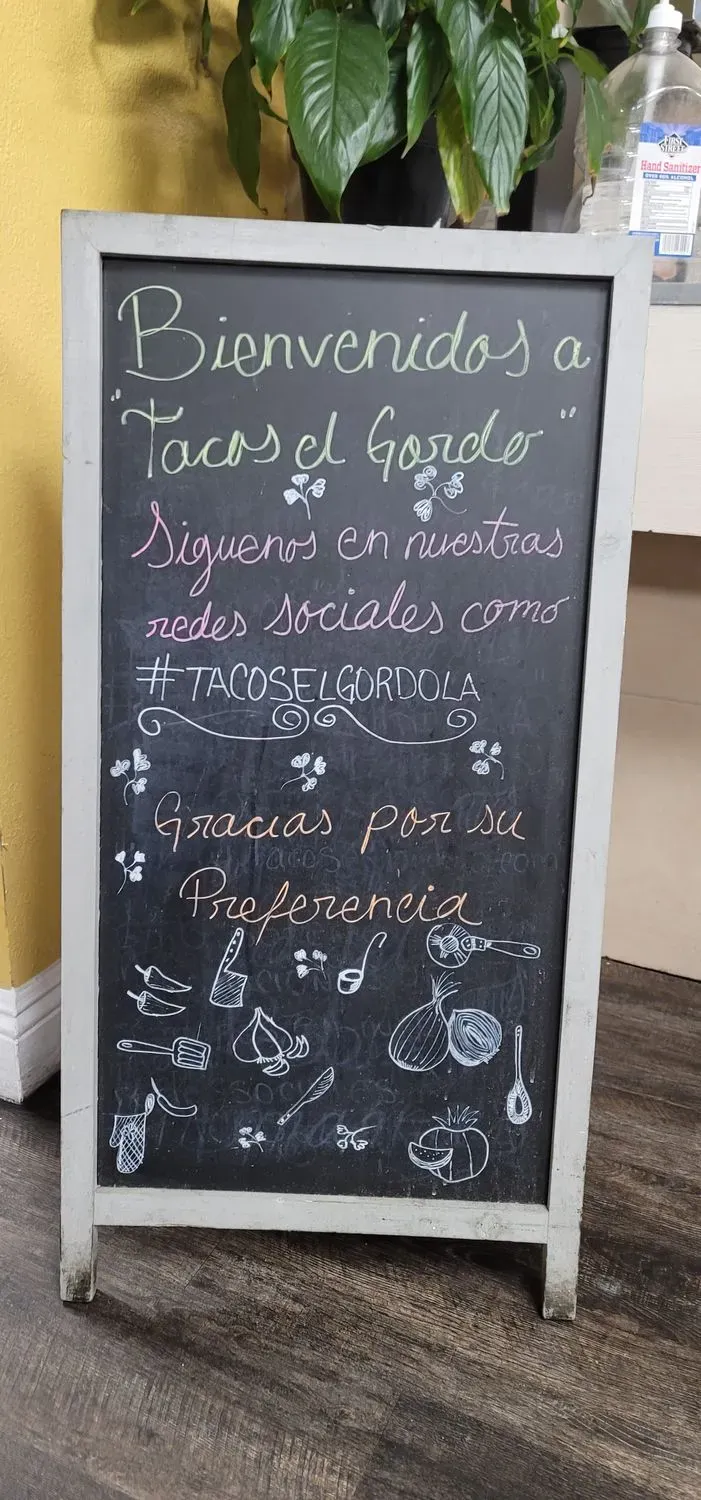 Bienvenidos a
"Tacos el Gordo"
Siguenos en nuestras
redes sociales como
#TACOSELGORDOLA
Gracias por su
Preferencia
FIRST
STREET
Hand Sanitizer
OVER 60% ALCOHOL